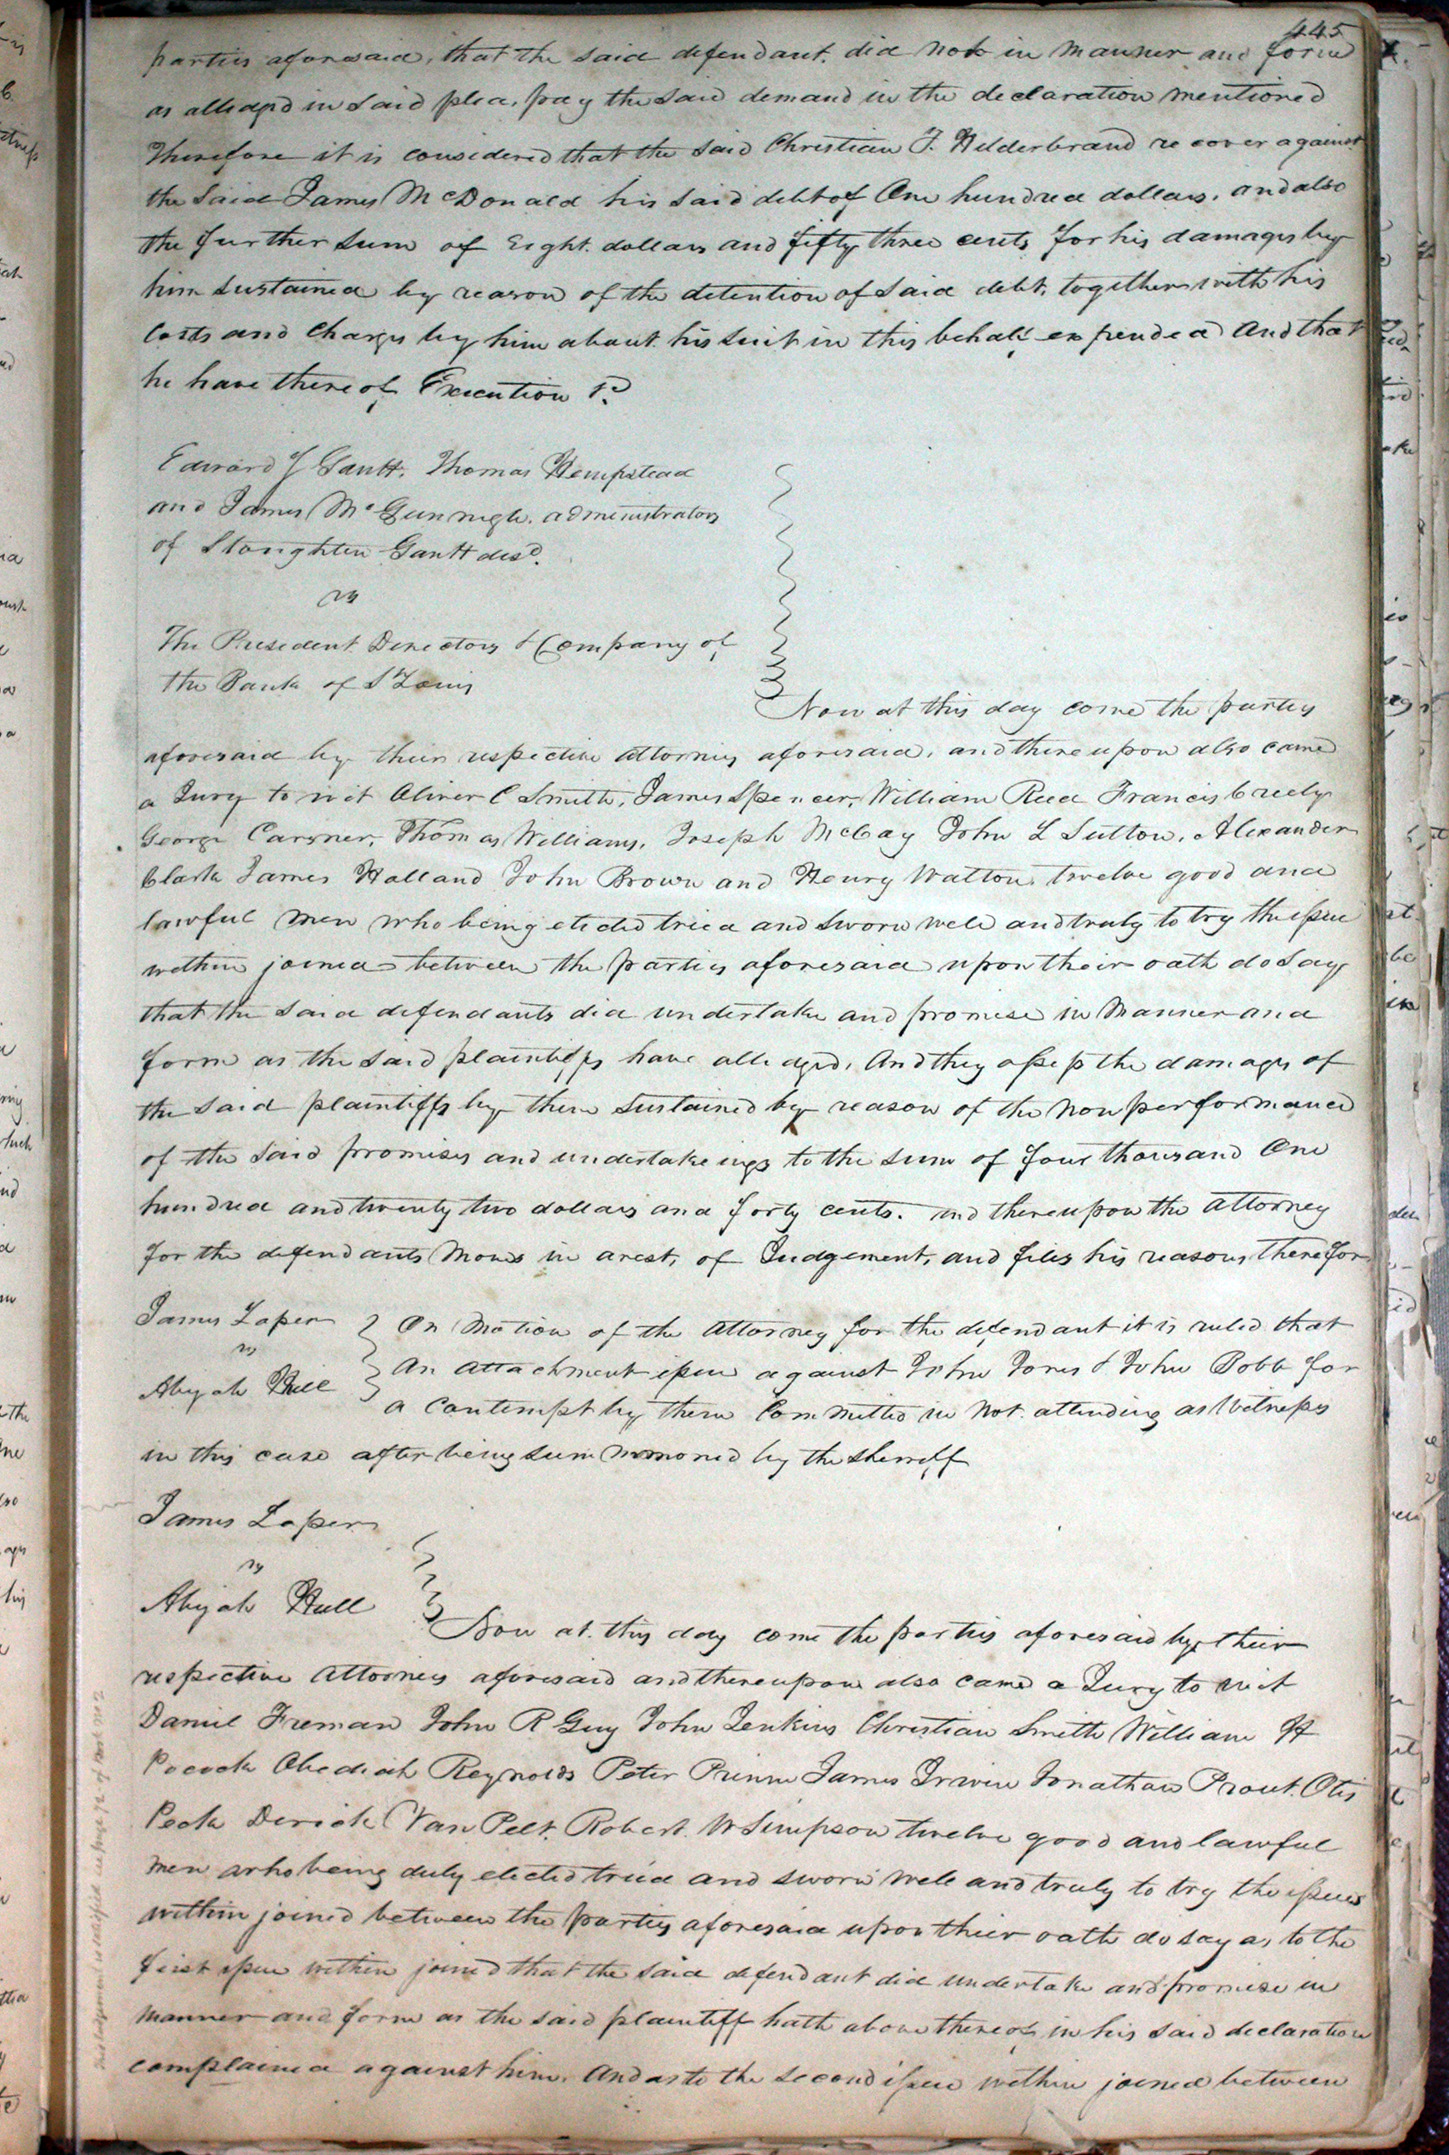 445
parties aforesaid, that the said defendant did not in manner and form
as alledged in said plea, pay the said demand in the declaration mentioned
Therefore it is considered that the said Christian F. Hilderbrand recover against
the said James McDonald his said debt of One hundred dollars, and also
the further sum of Eight dollars and fifty three cents for his damages by
him sustained by reason of the detention of said debt, together with his
Costs and Charges by him about his suit in this behalf expended And that
he have thereof Execution &c
Edward J Gantt, Thomas Hempstead
and James McGunnegle, administrators
of Stoughten Gantt decd.
vs
The President Directors & Company of
the Bank of St Louis
Now at this day come the parties
aforesaid by their respective attornies aforesaid, and thereupon also came
a Jury to wit Oliver C Smith, James Spencer, William Reed Francis Creely
George Carsner, Thomas Williams, Joseph McCay John L Sutton, Alexander
Clark James Holland John Brown and Henry Watton, twelve good and
lawful men who being elected tried and sworn well and truly to try the issue
within joined between the parties aforesaid upon their oath do say
that the said defendants did undertake and promise in manner and
form as the said plaintiffs have alledged, And they assess the damages of
the said plaintiffs by them sustained by reason of the non performance
of the said promises and undertakeings to the sum of four thousand One
hundred and twenty two dollars and forty cents. and thereupon the attorney
for the defendants Moves in arest, of Judgement, and files his reasons therefor
James Loper
vs
Abijah Hull
On Motion of the Attorney for the defendant it is ruled that
An attachment issue against John Jones & John Bobb for
a Contempt by them Committed in not attending as Witnesses
in this case after being summmoned by the sherriff
James Loper
vs
Abijah Hull
Now at this day come the parties aforesaid by their
respective Attornies aforesaid and thereupon also came a Jury to wit
Daniel Freman John R Guy John Jenkins Christian Smith William H
Pocock Obediah Reynolds Peter Primm James Irwin Jonathan Prout Otis
Peck Derick Van Pelt, Robert W Simpson twelve good and lawful
men who being duly elected tried and sworn well and truly to try the issues
within joined between the parties aforesaid upon thier oath do say as to the
first issue within joined that the said defendant did undertake and promise in
manner and form as the said plaintiff hath above thereof in his said declaration
complained against him. And as to the second issue within joined between